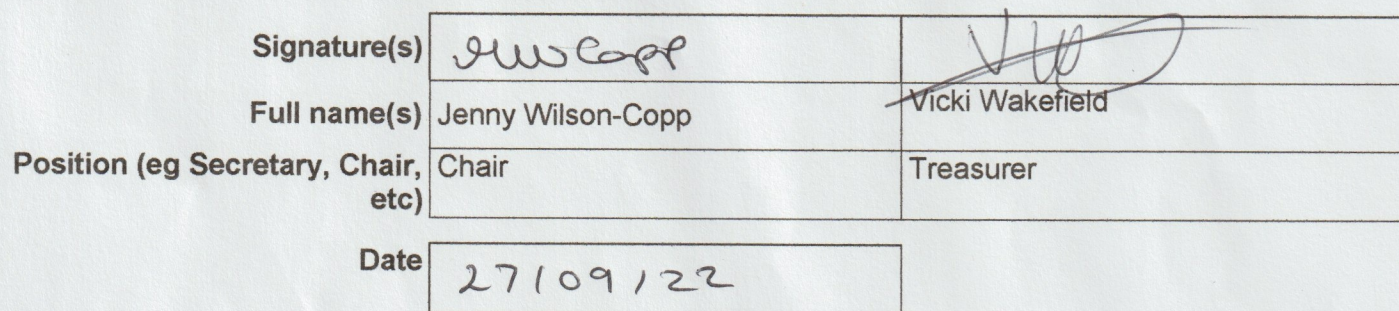 Signature(s)
Full name(s) Jenny Wilson-Copp Vicki Wakefield
Position (eg Secretary, Chair, Chair Treasurer
etc)
Date 27/09/22